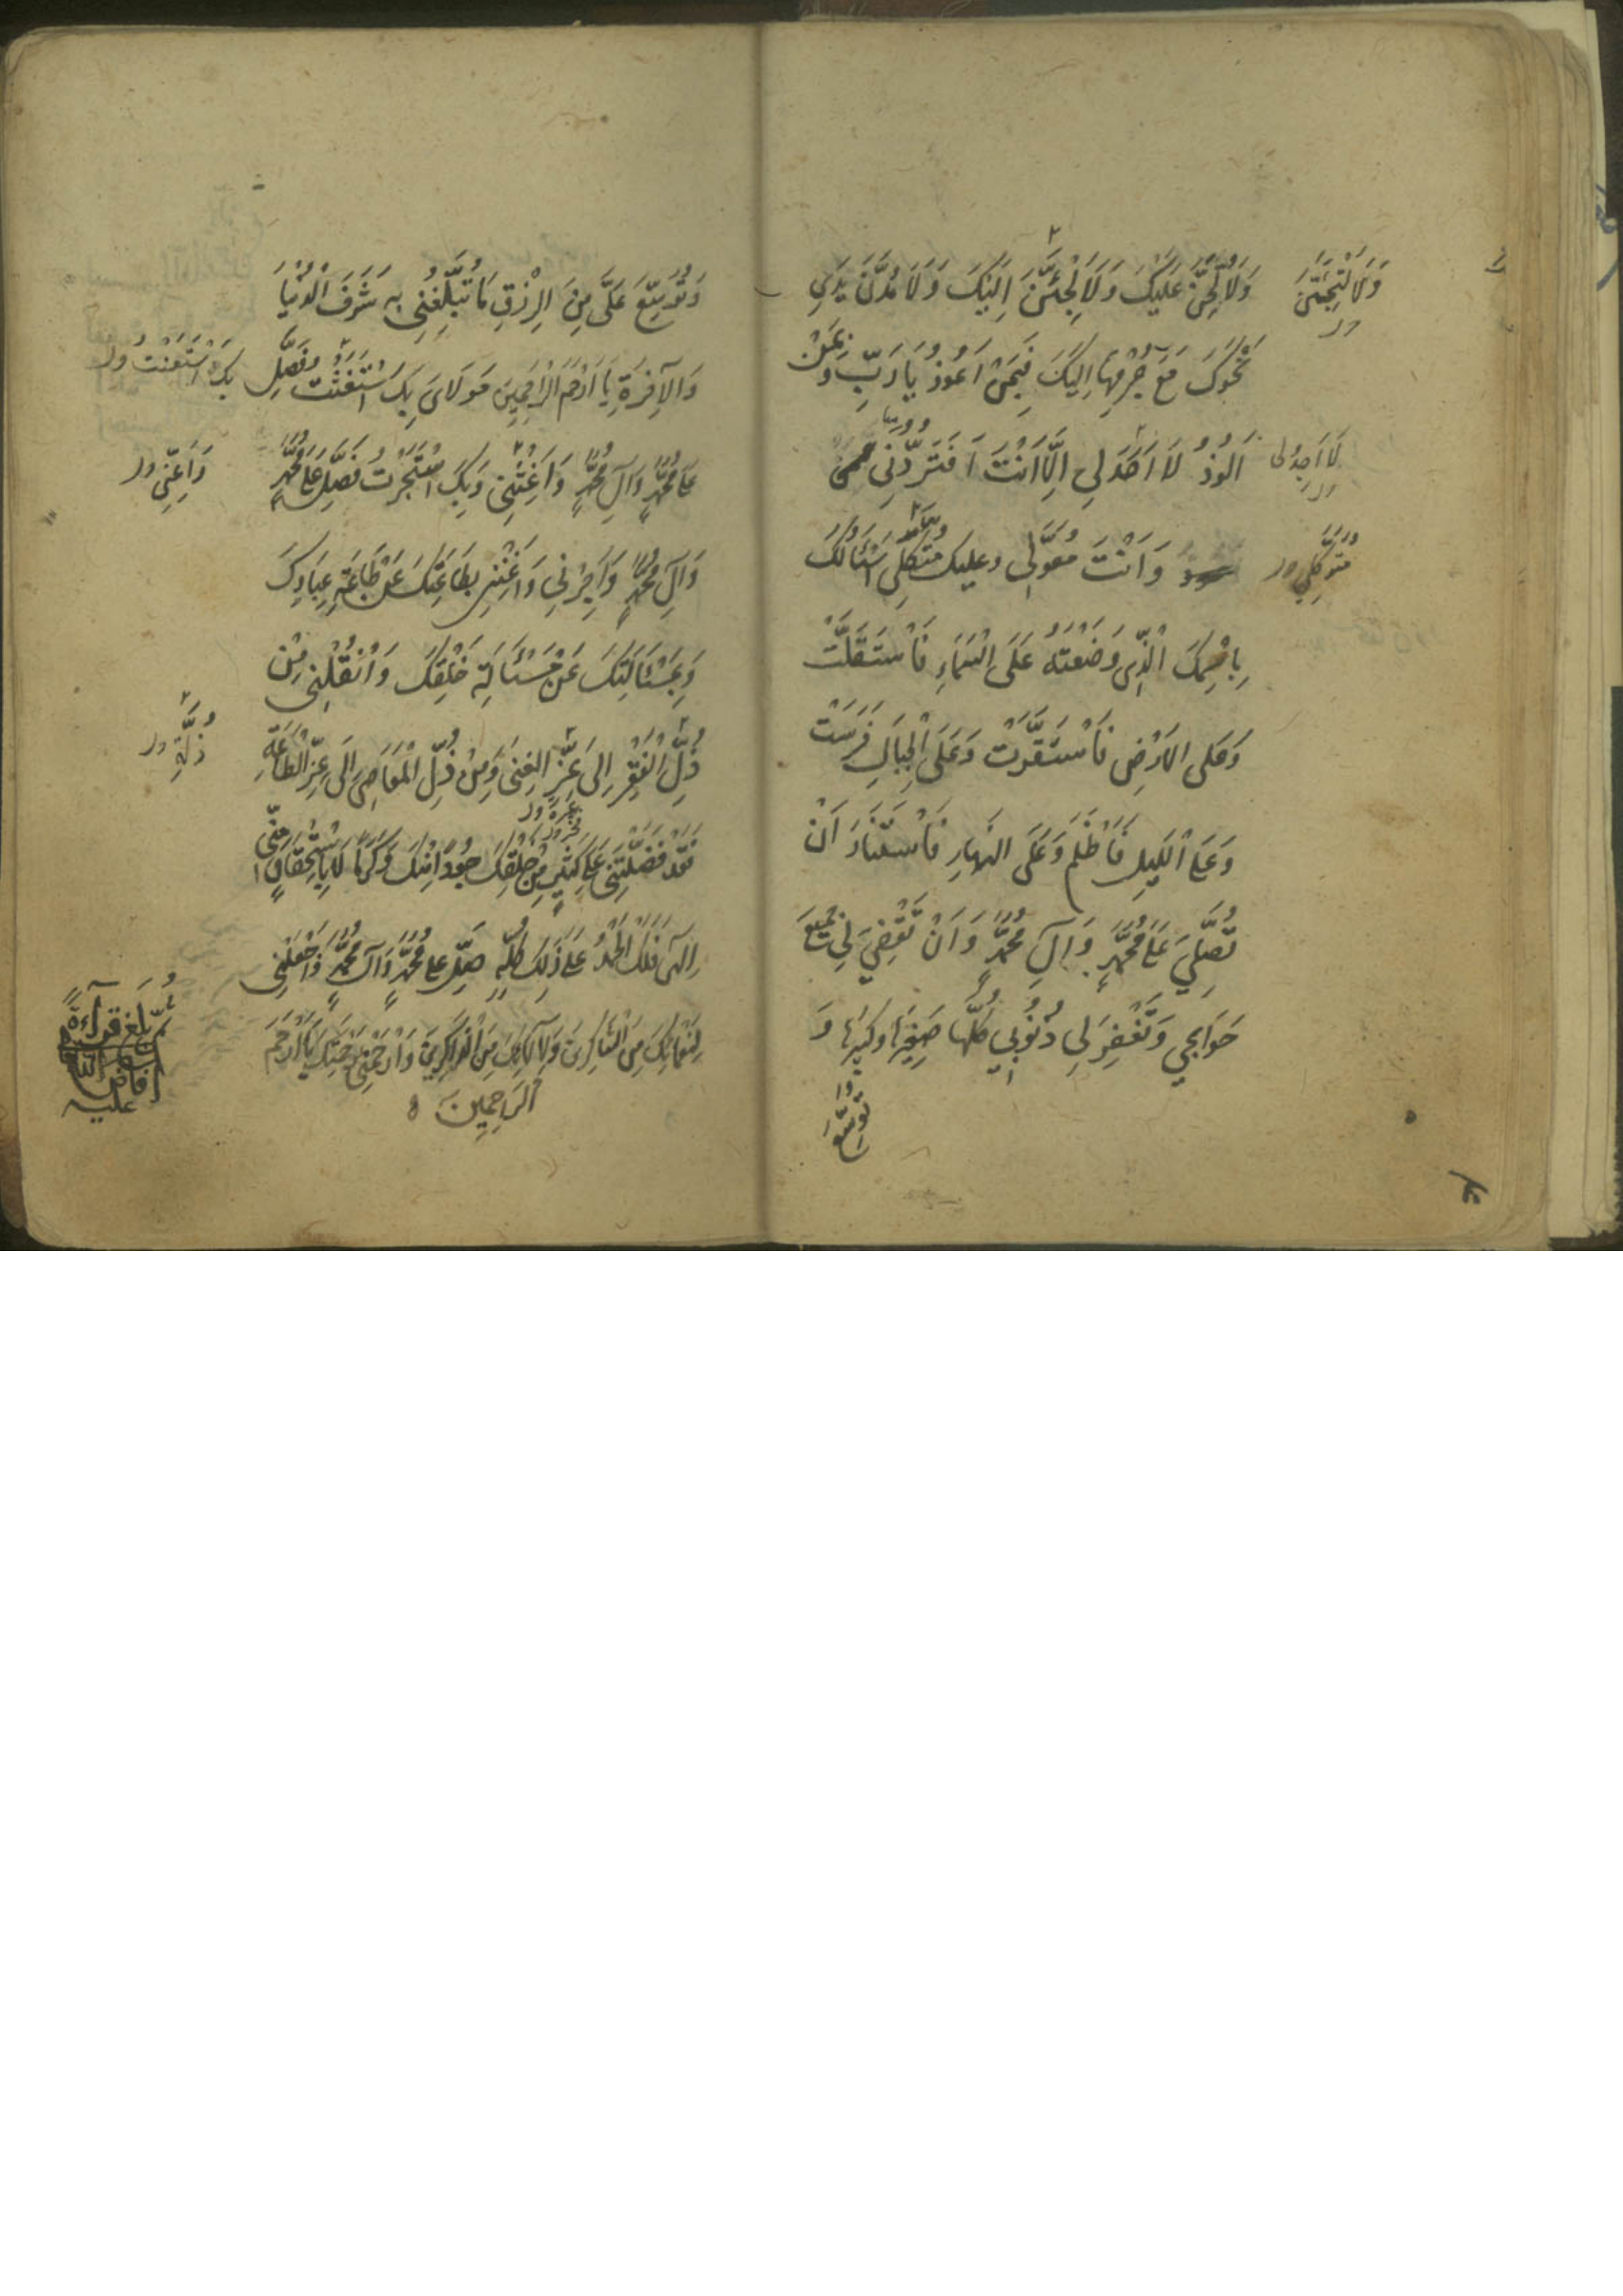 وَلَاُلِحَّنَّ عَلَيْكَ وَلَاَلْجَئَنَّ اِلَيْكَ وَلَاَمُدَّنَّ يَدَيَ
وَلَاَلْتَجِئَنَّ
نَحْوَكَ مَعَ جُرْمِهَا اِلَيْكَ فَبِمَنْ اَعُوذُ يَا رَبِّ وَبِمَنْ
اَلُوذُ لَا اَحَدَ لِي اِلَّا اَنْتَ اَفَتَرُدُّنِي
لَا اَجِدُ لِي
وَاَنْتَ مُعَوَّلِي وعليك مُتَّكَلِي اَسْئَالُكَ
مُتَوَكَّلِي
بِاسْمِكَ الَّذِي وَضَعْتَهُ عَلَى السَّمَاءِ فَاسْتَقَلَّتْ
وَعَلَى الاَرْضِ فَاسْتَقَرَّتْ وَعَلَى الْجِبَالِ فَرَسَتْ
وَعَلَى الَّليلِ فَاَظْلَمَ وَعَلَى النَّهارِ فَاسْتَنَارَ اَنْ
تُصَلِّيَ عَلَى مُحَمَّدٍ وَآلِ مُحَمَّدٍ وَاَنْ تَقْضِيَ لِي جَمِيعَ
حَوَائِجِي وَتَغْفِرَ لِي ذُنُوبِي كُلَّهَا صَغِيرَهَا وكَبِيرَهَا وَ
تُوَسِّعَ
وَتُوَسِّعَ عَلَيَّ مِنَ الرِّزْقِ مَا تُبَلِّغُنِي بِهِ شَرَفَ الدُّنْيَا
وَالآخِرَةِ يَا اَرْحَمَ الرَّاحِمِينَ مَوْلَايَ بِكَ اسْتَغَثْتُ فَصَلِّ
بِكَ اسْتَعَنْتُ
عَلَى مُحَمَّدٍ وَآلِ مُحَمَّدٍ وَاَغِثْنِي وَبِكَ اسْتَجَرْتُ فَصَلِّ عَلَى مُحَمَّدٍ
وَاَعِنِّي
وَآلِ مُحَمَّدٍ وَاَجِرْنِي وَاَغْنِنِي بِطَاعَتِكَ عَنْ طَاعَةِ عِبَادِكَ
وَبِمَسْئَالَتِكَ عَنْ مَسْئَالَةِ خَلْقِكَ وَانْقُلْنِي مِنْ
ذُلِّ الْفَقْرِ اِلَى عِزِّ الْغِنَى وَمِنْ ذُلِّ الْمَعَاصِي اِلَى عِزِّ الطَّاعَةِ
ذِلَّةِ
فَقَدْ فَضَّلْتَنِي عَلَى كَثِيرٍ مِنْ خَلْقِكَ جُودًا مِنْكَ وَكَرَمًا لَا بِاسْتِحْقَاقٍ مِنِّي
اِلٰهِي فَلَكَ الْحَمْدُ عَلَى ذَلِكَ كُلِّهِ صَلِّ عَلَى مُحَمَّدٍ وَآلِ مُحَمَّدٍ وَاجْعَلْنِي
لِنَعْمَائِكَ مِنَ الشَّاكِرِينَ وَلِآلَائِكَ مِنَ الذَّاكِرِينَ وَارْحَمْنِي بِرَحْمَتِكَ يَا اَرْحَمَ
الرَّاحِمِينَ
ثُمَّ بَلَغَ قِرَآءَةً
افاض
عليه